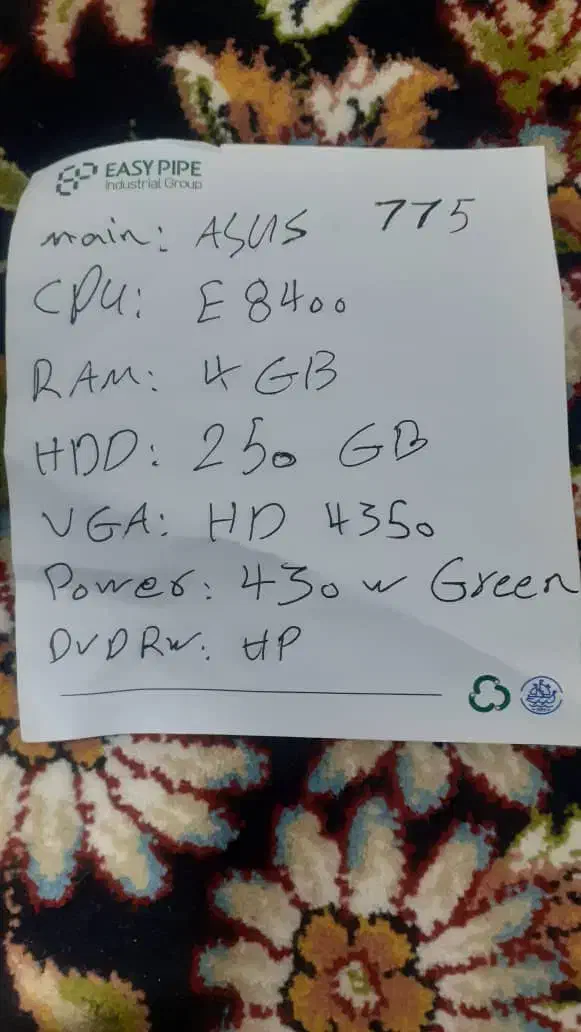 EASY PIPE
Industrial Group
main: ASUS 775
CPU: E 8400
RAM: 4 GB
HDD: 250 GB
VGA: HD 4350
Power: 430 w Green
DVD RW: HP